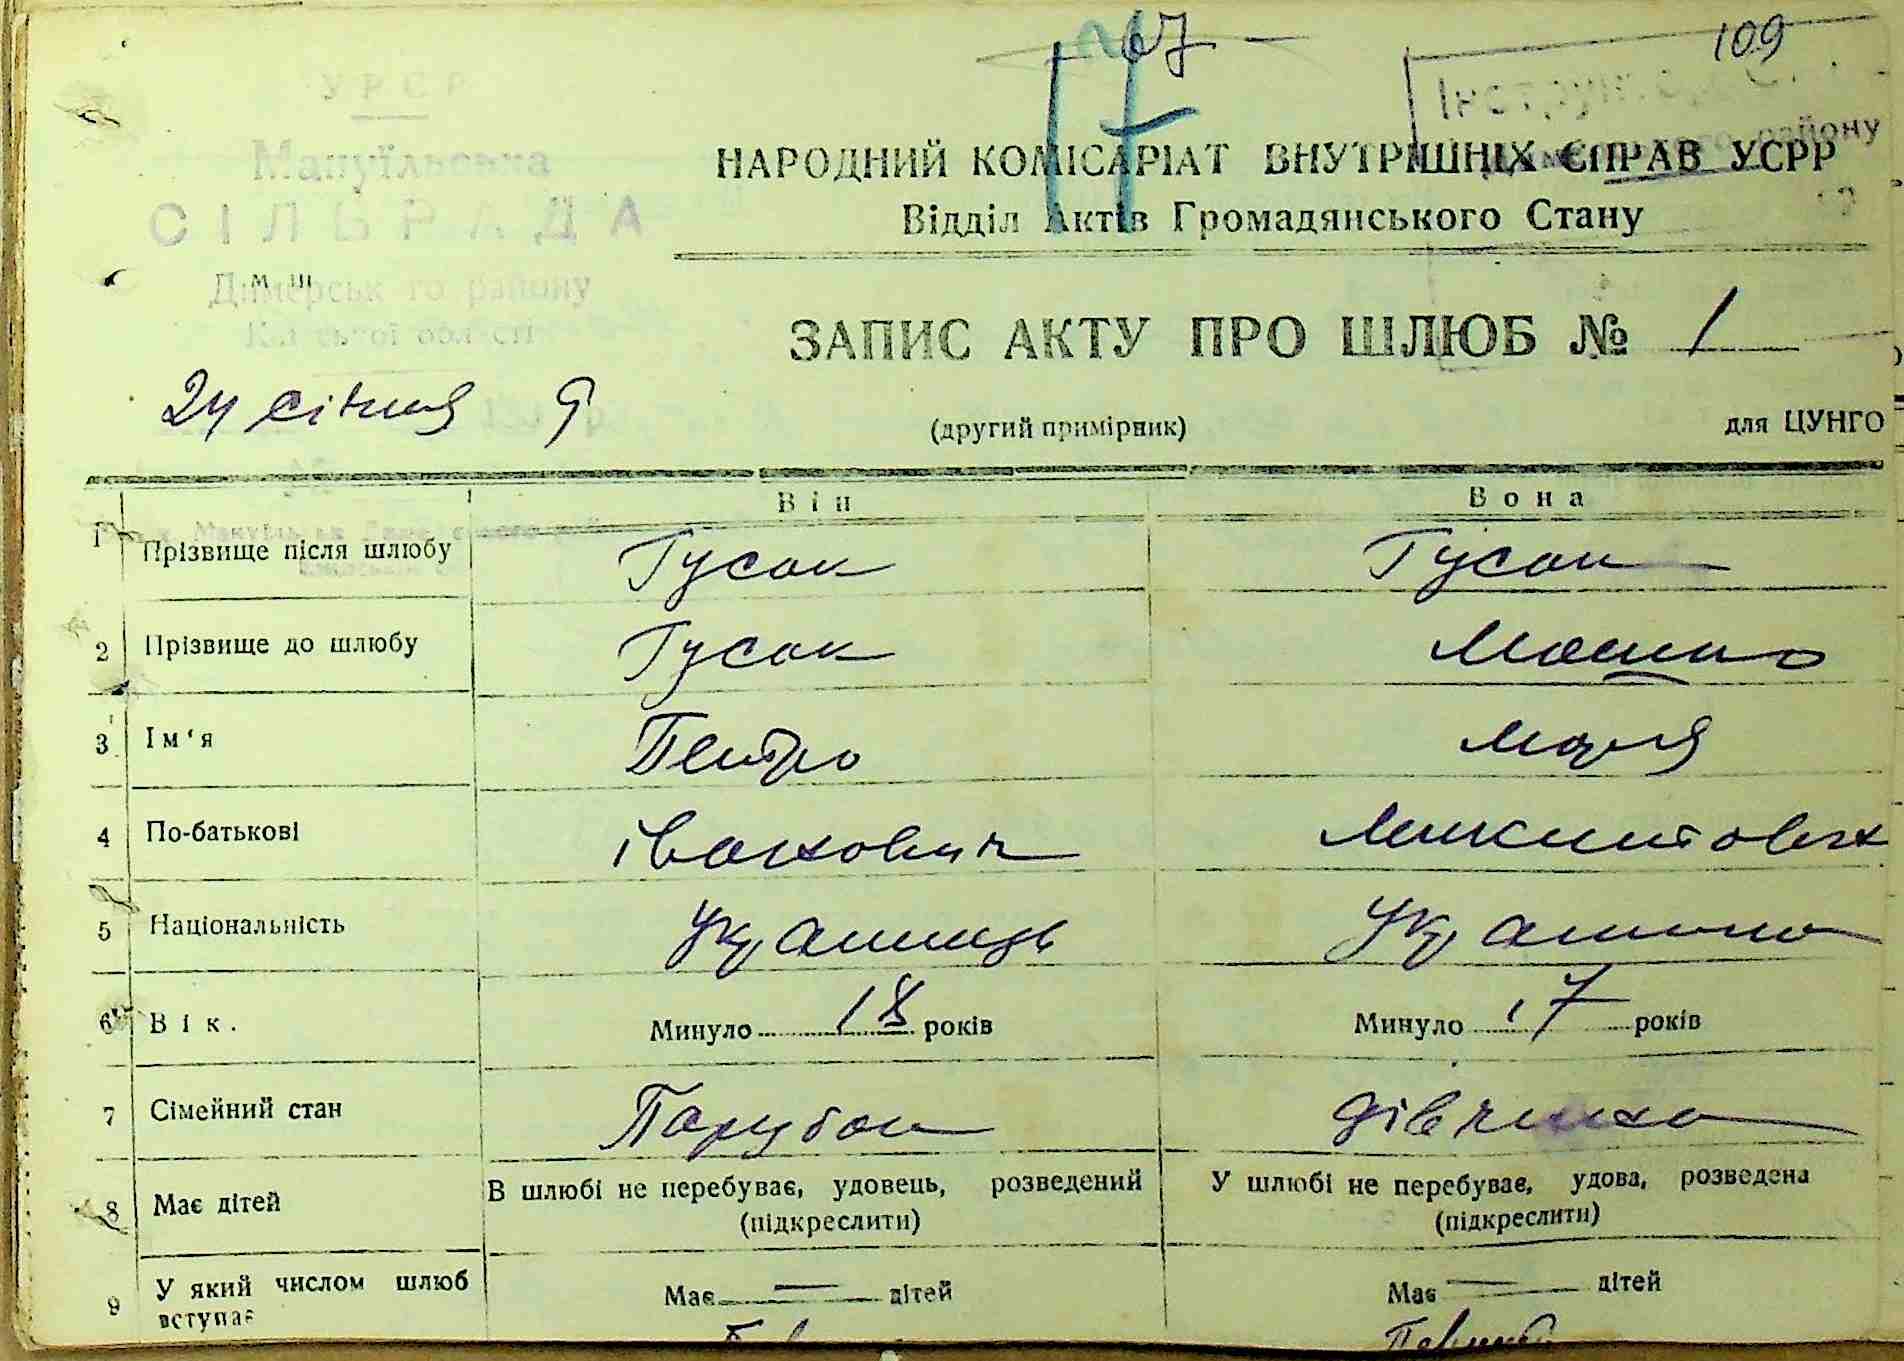 67
109
УРСР
Мануїльська
СІЛЬРАДА
Димерського району
Київської області
НАРОДНИЙ КОМІСАРІАТ ВНУТРІШНІХ СПРАВ УСРР
району
Відділ Актів Громадянського Стану
ЗАПИС АКТУ ПРО ШЛЮБ № 1
24 січня 9
(другий примірник)
для ЦУНГО
Він Вона
1 Прізвище після шлюбу Гусак Гусак
2 Прізвище до шлюбу Гусак
3 Ім'я Петро Марія
4 По-батькові Іванович Микитовна
5 Національність Українець Українка
6 Вік. Минуло 18 років Минуло 17 років
7 Сімейний стан Парубок дівчина
8 Має дітей В шлюбі не перебуває, удовець, розведений У шлюбі не перебуває, удова, розведена
(підкреслити) (підкреслити)
9 У який числом шлюб Має — дітей Має — дітей
вступає